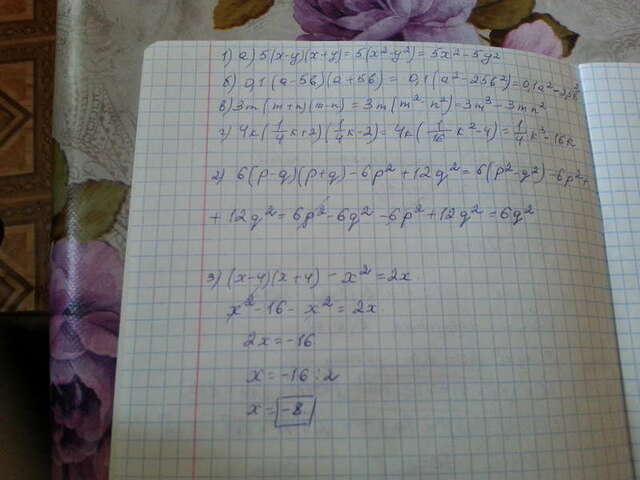 1) а) 5(x-y)(x+y) = 5(x²-y²) = 5x²-5y²
б) 0,1(a-5b)(a+5b) = 0,1(a²-25b²) = 0,1a²-2,5b²
в) 3m(m+n)(m-n) = 3m(m²-n²) = 3m³-3mn²
г) 4k(1/4k+2)(1/4k-2) = 4k(1/16k²-4) = 1/4k³-16k
2) 6(p-q)(p+q)-6p²+12q² = 6(p²-q²)-6p²+
+12q² = 6p²-6q²-6p²+12q² = 6q²
3) (x-4)(x+4)-x² = 2x
x²-16-x² = 2x
2x = -16
x = -16:2
x = -8